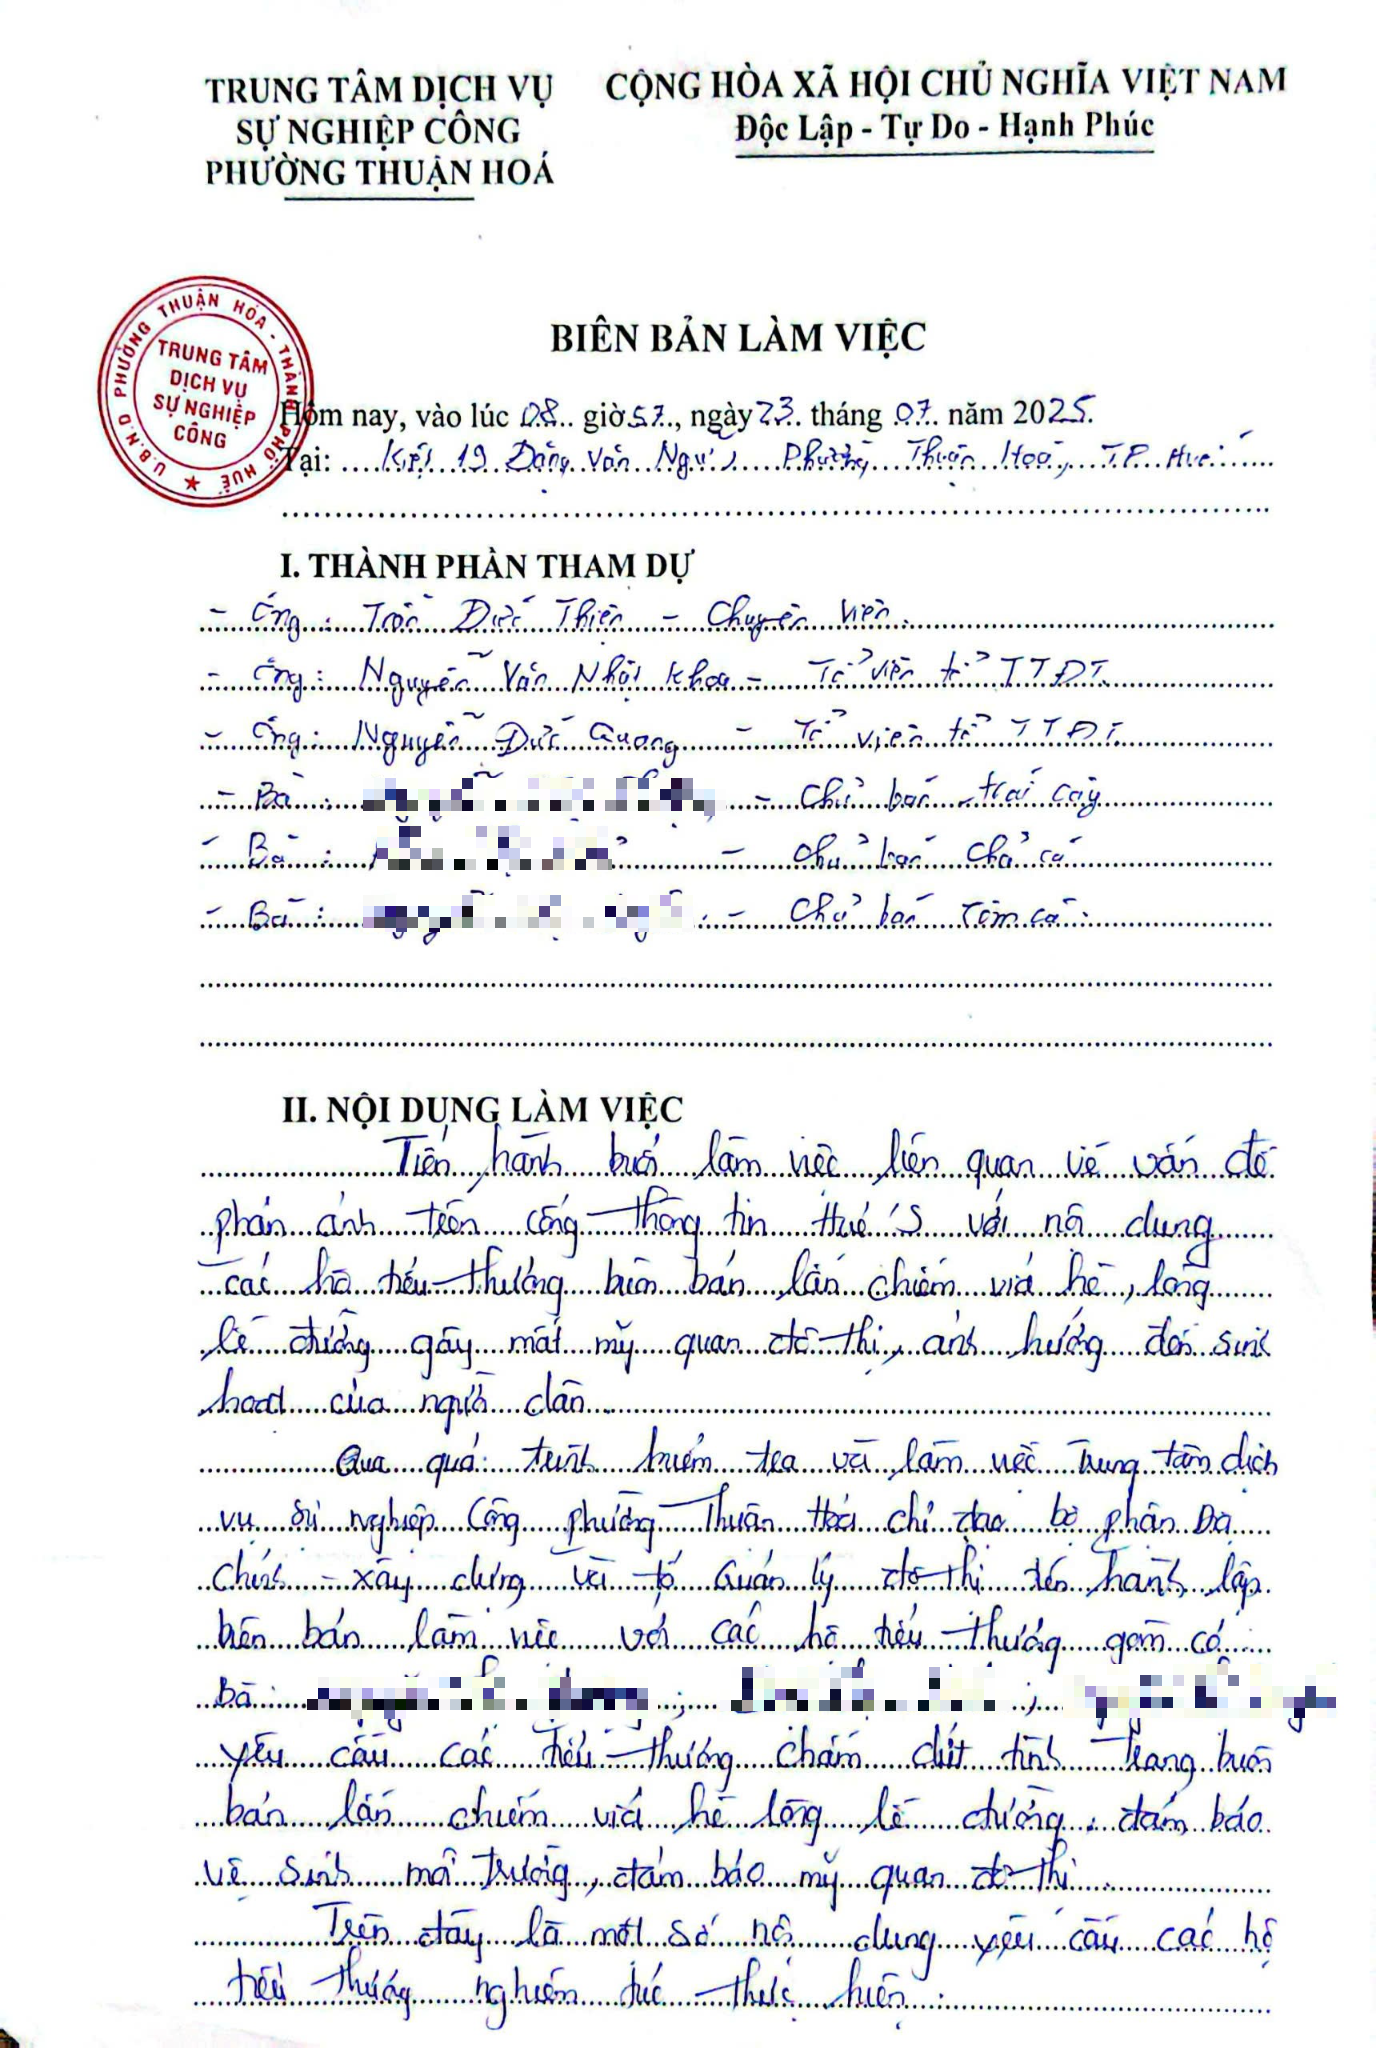 TRUNG TÂM DỊCH VỤ
SỰ NGHIỆP CÔNG
PHƯỜNG THUẬN HOÁ
CỘNG HÒA XÃ HỘI CHỦ NGHĨA VIỆT NAM
Độc Lập - Tự Do - Hạnh Phúc
U.B.N.D PHƯỜNG THUẬN HÓA - THÀNH PHỐ HUẾ
TRUNG TÂM
DỊCH VỤ
SỰ NGHIỆP
CÔNG
BIÊN BẢN LÀM VIỆC
Hôm nay, vào lúc 08 giờ 57, ngày 23 tháng 07 năm 2025.
Tại: Kiệt 19 Đặng Văn Ngữ, Phường Thuận Hoá, TP. Huế
I. THÀNH PHẦN THAM DỰ
- Ông: Trần Đức Thiện - Chuyên viên.
- Ông: Nguyễn Văn Nhật Khoa - Tổ viên tổ TTĐT.
- Ông: Nguyễn Đức Quang - Tổ viên tổ TTĐT.
- Bà: - Chủ bán trái cây
- Bà: - Chủ bán chả cá
- Bà: - Chủ bán tôm cá.
II. NỘI DUNG LÀM VIỆC
Tiến hành buổi làm việc liên quan về vấn đề
phản ánh trên cổng thông tin Huế S với nội dung
các hộ tiểu thương buôn bán lấn chiếm vỉa hè, lòng
lề đường gây mất mỹ quan đô thị, ảnh hưởng đến sinh
hoạt của người dân.
Qua quá trình kiểm tra và làm việc Trung tâm dịch
vụ sự nghiệp Công phường Thuận Hoá chỉ đạo bộ phận Địa
chính - xây dựng và tổ Quản lý đô thị tiến hành lập
biên bản làm việc với các hộ tiểu thương gồm có
bà: ; ;
yêu cầu các tiểu thương chấm dứt tình trạng buôn
bán lấn chiếm vỉa hè lòng lề đường, đảm bảo
vệ sinh môi trường, đảm bảo mỹ quan đô thị.
Trên đây là một số nội dung yêu cầu các hộ
tiểu thương nghiêm túc thực hiện.